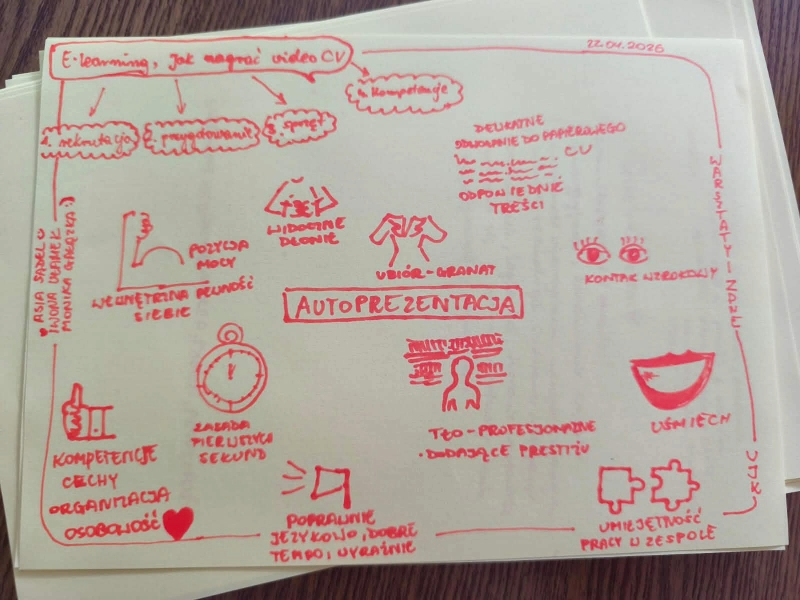 E-learning, jak nagrać video CV
22.04.2026
1. rekrutacja
2. przygotowanie
3. sprzęt
4. Kompetencje
DELIKATNE
ODWOŁANIE DO PAPIEROWEGO
CV
ODPOWIEDNIE
TREŚCI
WIDOCZNE
DŁONIE
POZYCJA
MOCY
WEWNĘTRZNA PEWNOŚĆ
SIEBIE
UBIÓR-GRANAT
KONTAK WZROKOWY
AUTOPREZENTACJA
ZASADA
PIERWSZYCH
SEKUND
TŁO-PROFESJONALNE
·DODAJĄCE PRESTIŻU
UŚMIECH
KOMPETENCJE
CECHY
ORGANIZACJA
OSOBOWOŚĆ
POPRAWNIE
JĘZYKOWO, DOBRE
TEMPO I WYRAŹNIE
UMIEJĘTNOŚĆ
PRACY W ZESPOLE
ASIA
IWONA
MONIKA GAŁĄZKA :)